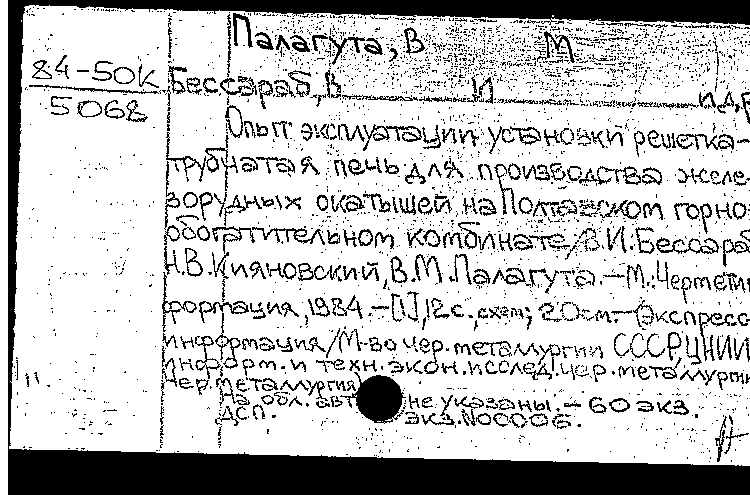 Палагута, В М
84-50К
5068
Бессараб, В И и др
Опыт эксплуатации установки решетка-
трубчатая печь для производства желе-
зорудных окатышей на Полтавском горно-
обогатительном комбинате/В.И.Бессараб
Н.В.Кияновский, В.М.Палагута.-М.: Черметин
формация, 1984.-[1], 12 с., схем; 20 см.-(Экспресс-
информация/М-во чер. металлургии СССР, ЦНИИ
информ. и техн. экон. исслед. чер. металлургии
чер. металлургия)
На обл. авт. не указаны.-60 экз.
ДСП. экз. N00006.